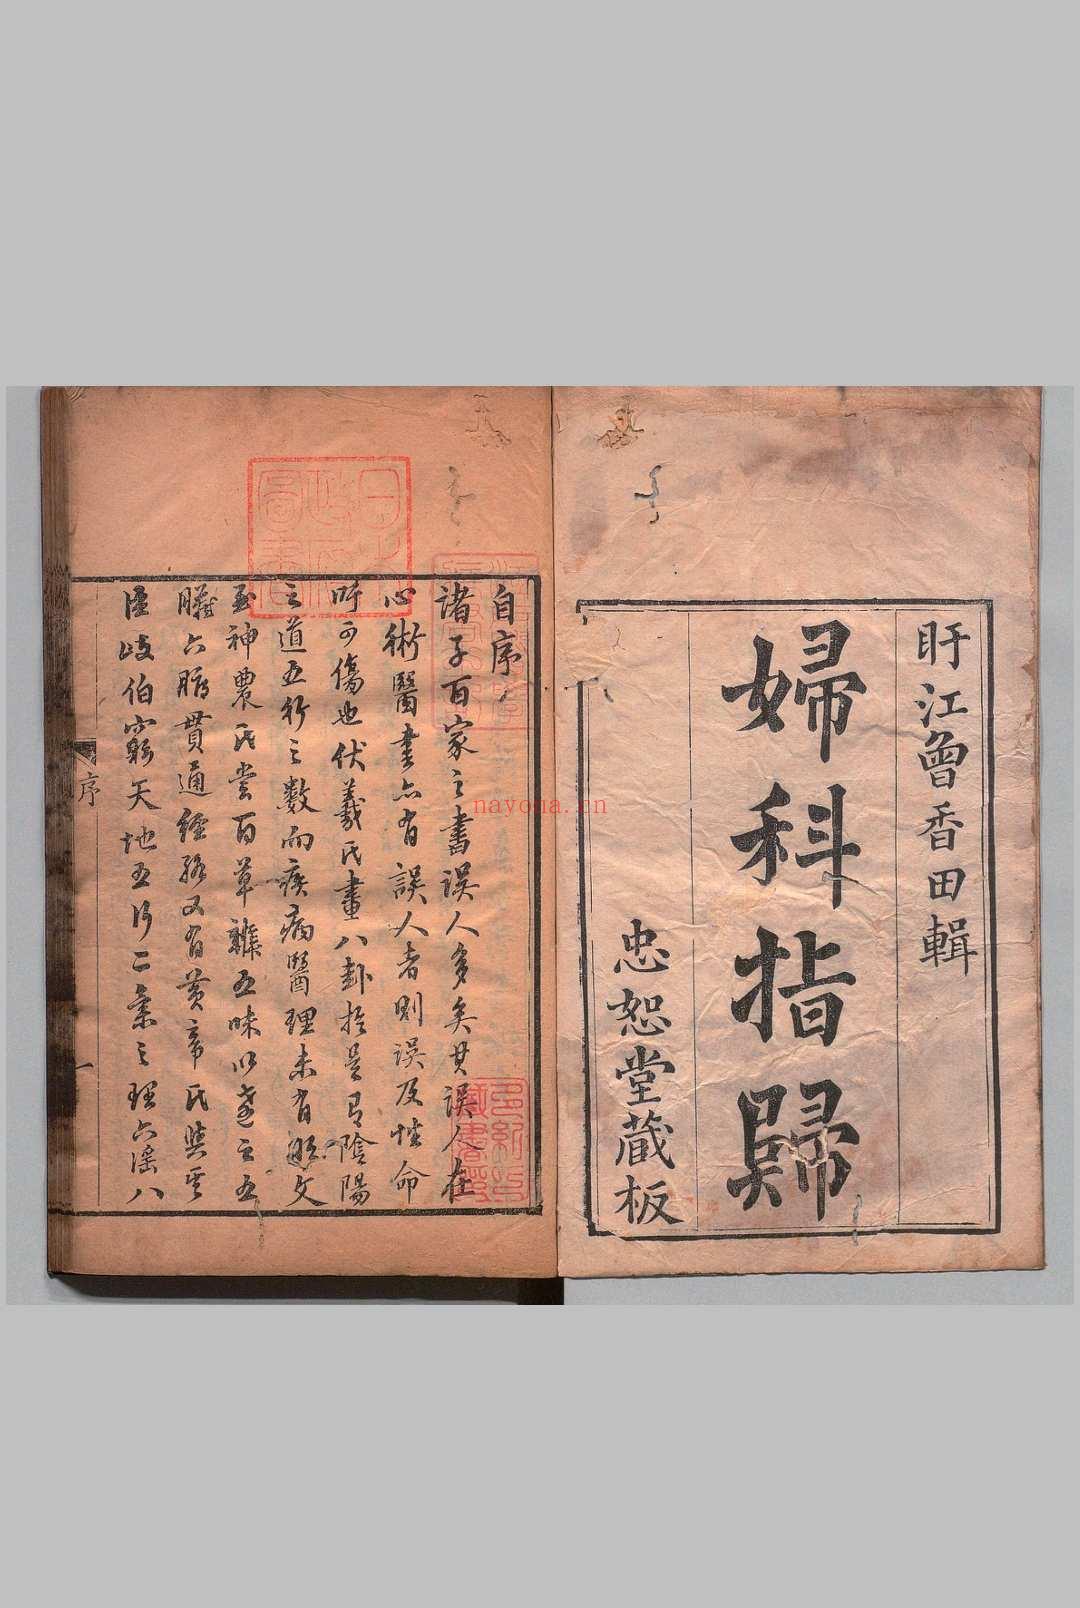 盱江曾香田輯
婦科指歸
忠恕堂藏板
自序
諸子百家之書誤人多矣其誤人在
心術醫書亦有誤人者則誤及性命
吁可傷也伏羲氏畫八卦於是有陰陽
之道五行之數而疾病醫理未有明文
至神農氏嘗百草辨五味以產之五
臟六腑貫通經絡又有黃帝氏與其
臣岐伯窮天地五行二氣之理六淫八
序
一
nayona.cn